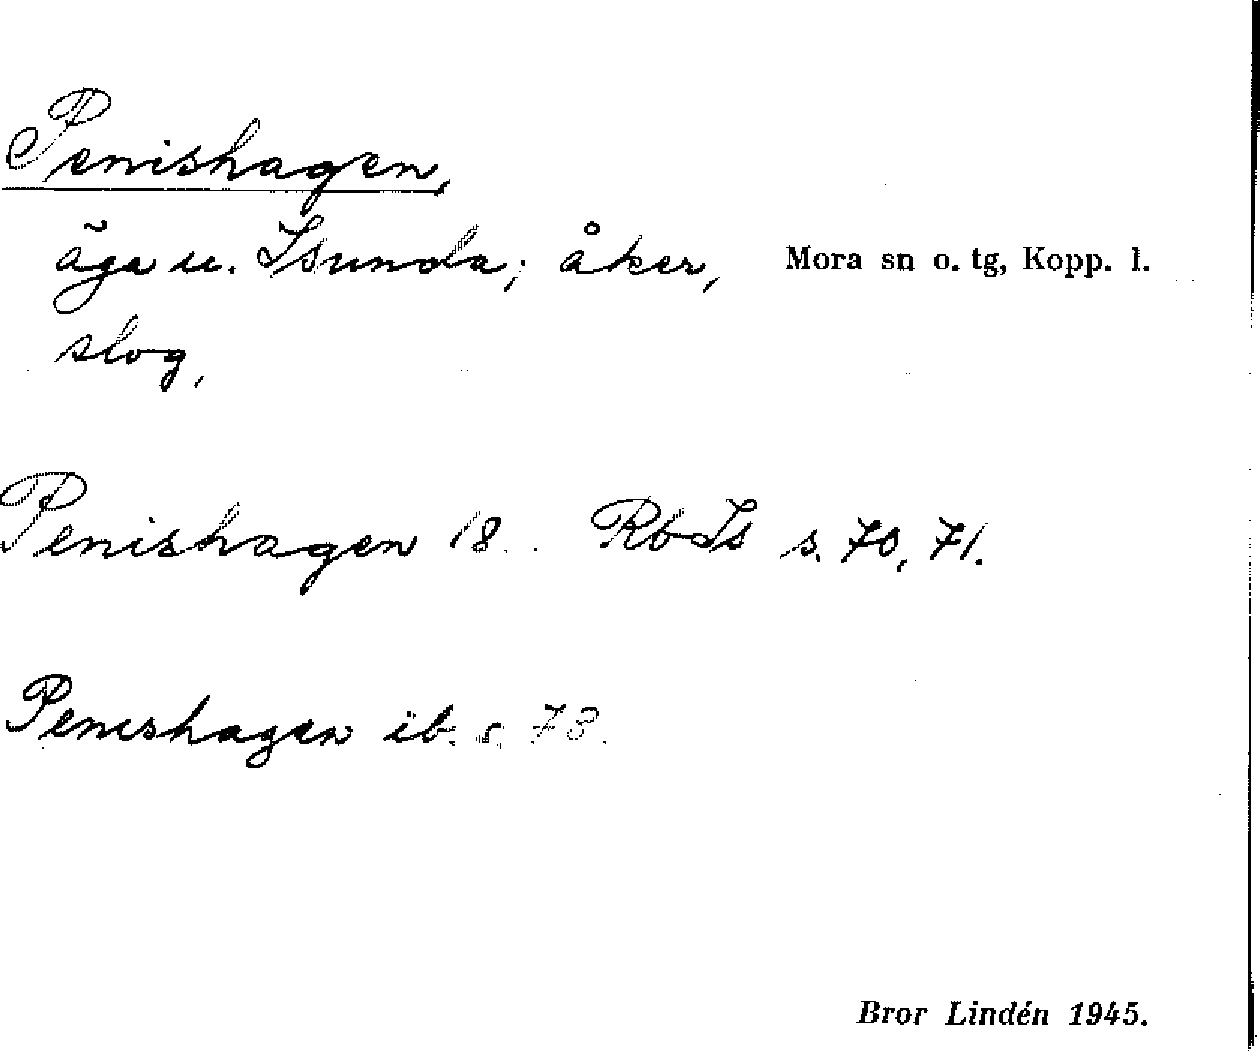 Penishagen,
äga u. Isunda; åker, Mora sn o. tg, Kopp. l.
slog,
Penishagen 18.. RbIs s. 70, 71.
Penishagen ib. s. 73.
Bror Lindén 1945.